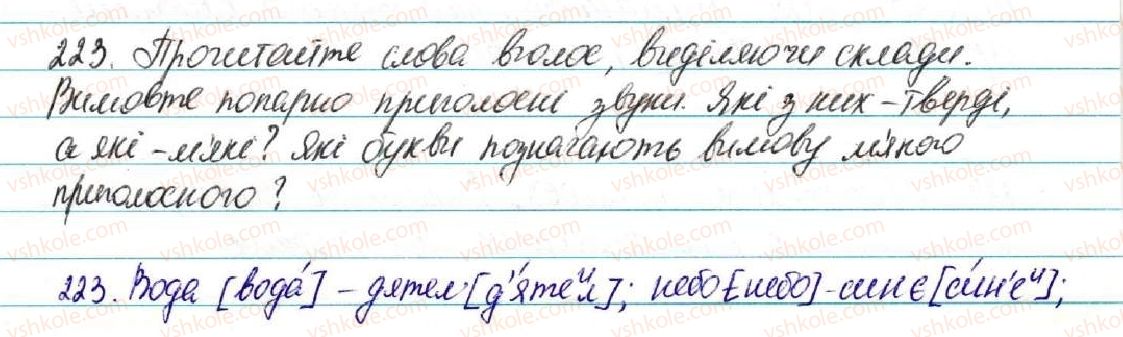 223. Прочитайте слова вголос, виділяючи склади.
Вимовте попарно приголосні звуки. Які з них – тверді,
а які – м'які? Які букви позначають вимову м'якого
приголосного?
223. Вода [вода́] – дятел [д'я́теил]; небо [небо] - синє [си́н'еи];